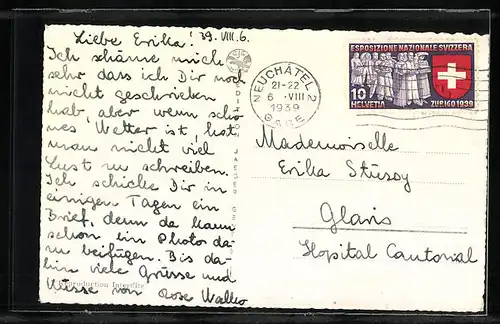 Liebe Erika! 39. VIII. 6.
Ich schäme mich
sehr dass ich Dir noch
nicht geschrieben
hab, aber wenn schö
nes Wetter ist, hat
man nicht viel
Lust zu schreiben.
Ich schicke Dir in
einigen Tagen ein
Brief, denn da kann
schon ein Photo da-
zu beifügen. Bis da-
hin viele Grüsse und
Küsse von Rose
Reproduction Interdite
NEUCHÂTEL 2
21-22
6 · VIII
1939
ESPOSIZIONE NAZIONALE SVIZZERA
10
HELVETIA
ZURIGO 1939
Mademoiselle
Erika Stüssy
Glaris
Hopital Cantonal